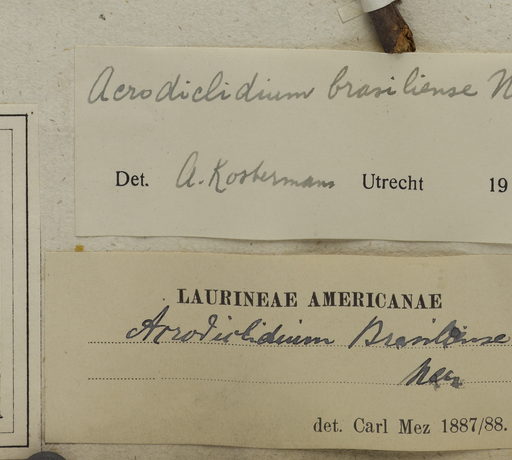 Acrodiclidium brasiliense N
Det. A. Kostermans Utrecht 19
LAURINEAE AMERICANAE
Acrodiclidium Brasiliense
Nees
det. Carl Mez 1887/88.